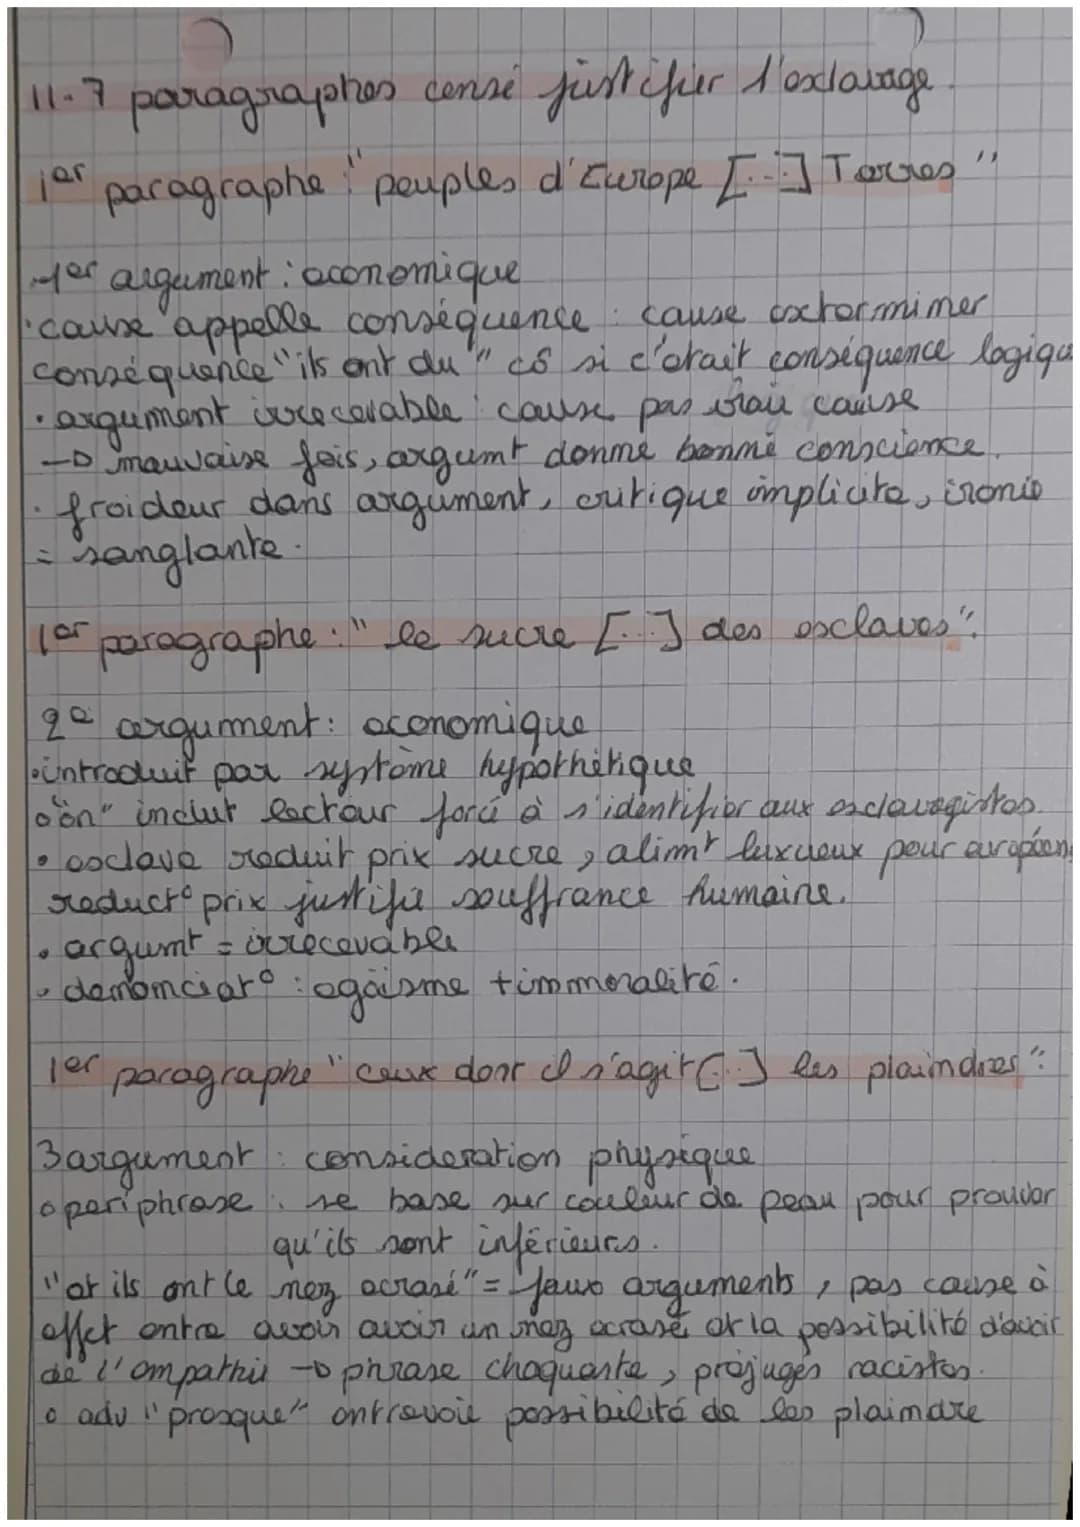 II-7 paragraphes censé justifier l'esclavage.
1er paragraphe : "peuples d'Europe [...] Terres"
1er argument : économique
• cause appelle conséquence : cause exterminer
conséquence "ils ont du" cô si c'était conséquence logiqu
• argument irrecevable : cause pas vraie cause
→ mauvaise fois, argumt donne bonne conscience.
• froideur dans argument, critique implicite, ironie
= sanglante.
1er paragraphe : "le sucre [...] des esclaves".
2e argument : économique
• introduit par système hypothétique
• "on" inclut lecteur forcé à s'identifier aux esclavagistes.
• esclave réduit prix sucre, alimt luxueux pour européens
reduct° prix justifie souffrance humaine.
• argumt = irrecevable
• dénonciat° : égoïsme + immoralité.
1er paragraphe "ceux dont il s'agit [...] les plaindres" :
3 argument : consideration physique
• periphrase : se base sur couleur de peau pour prouver
qu'ils sont inférieurs.
"et ils ont le nez écrasé" = faux arguments, pas cause à
effet entre avoir avoir un nez écrasé et la possibilité d'avoir
de l'empathie → phrase choquante, préjugés racistes.
• adv "presque" entrevoie possibilité de les plaindre